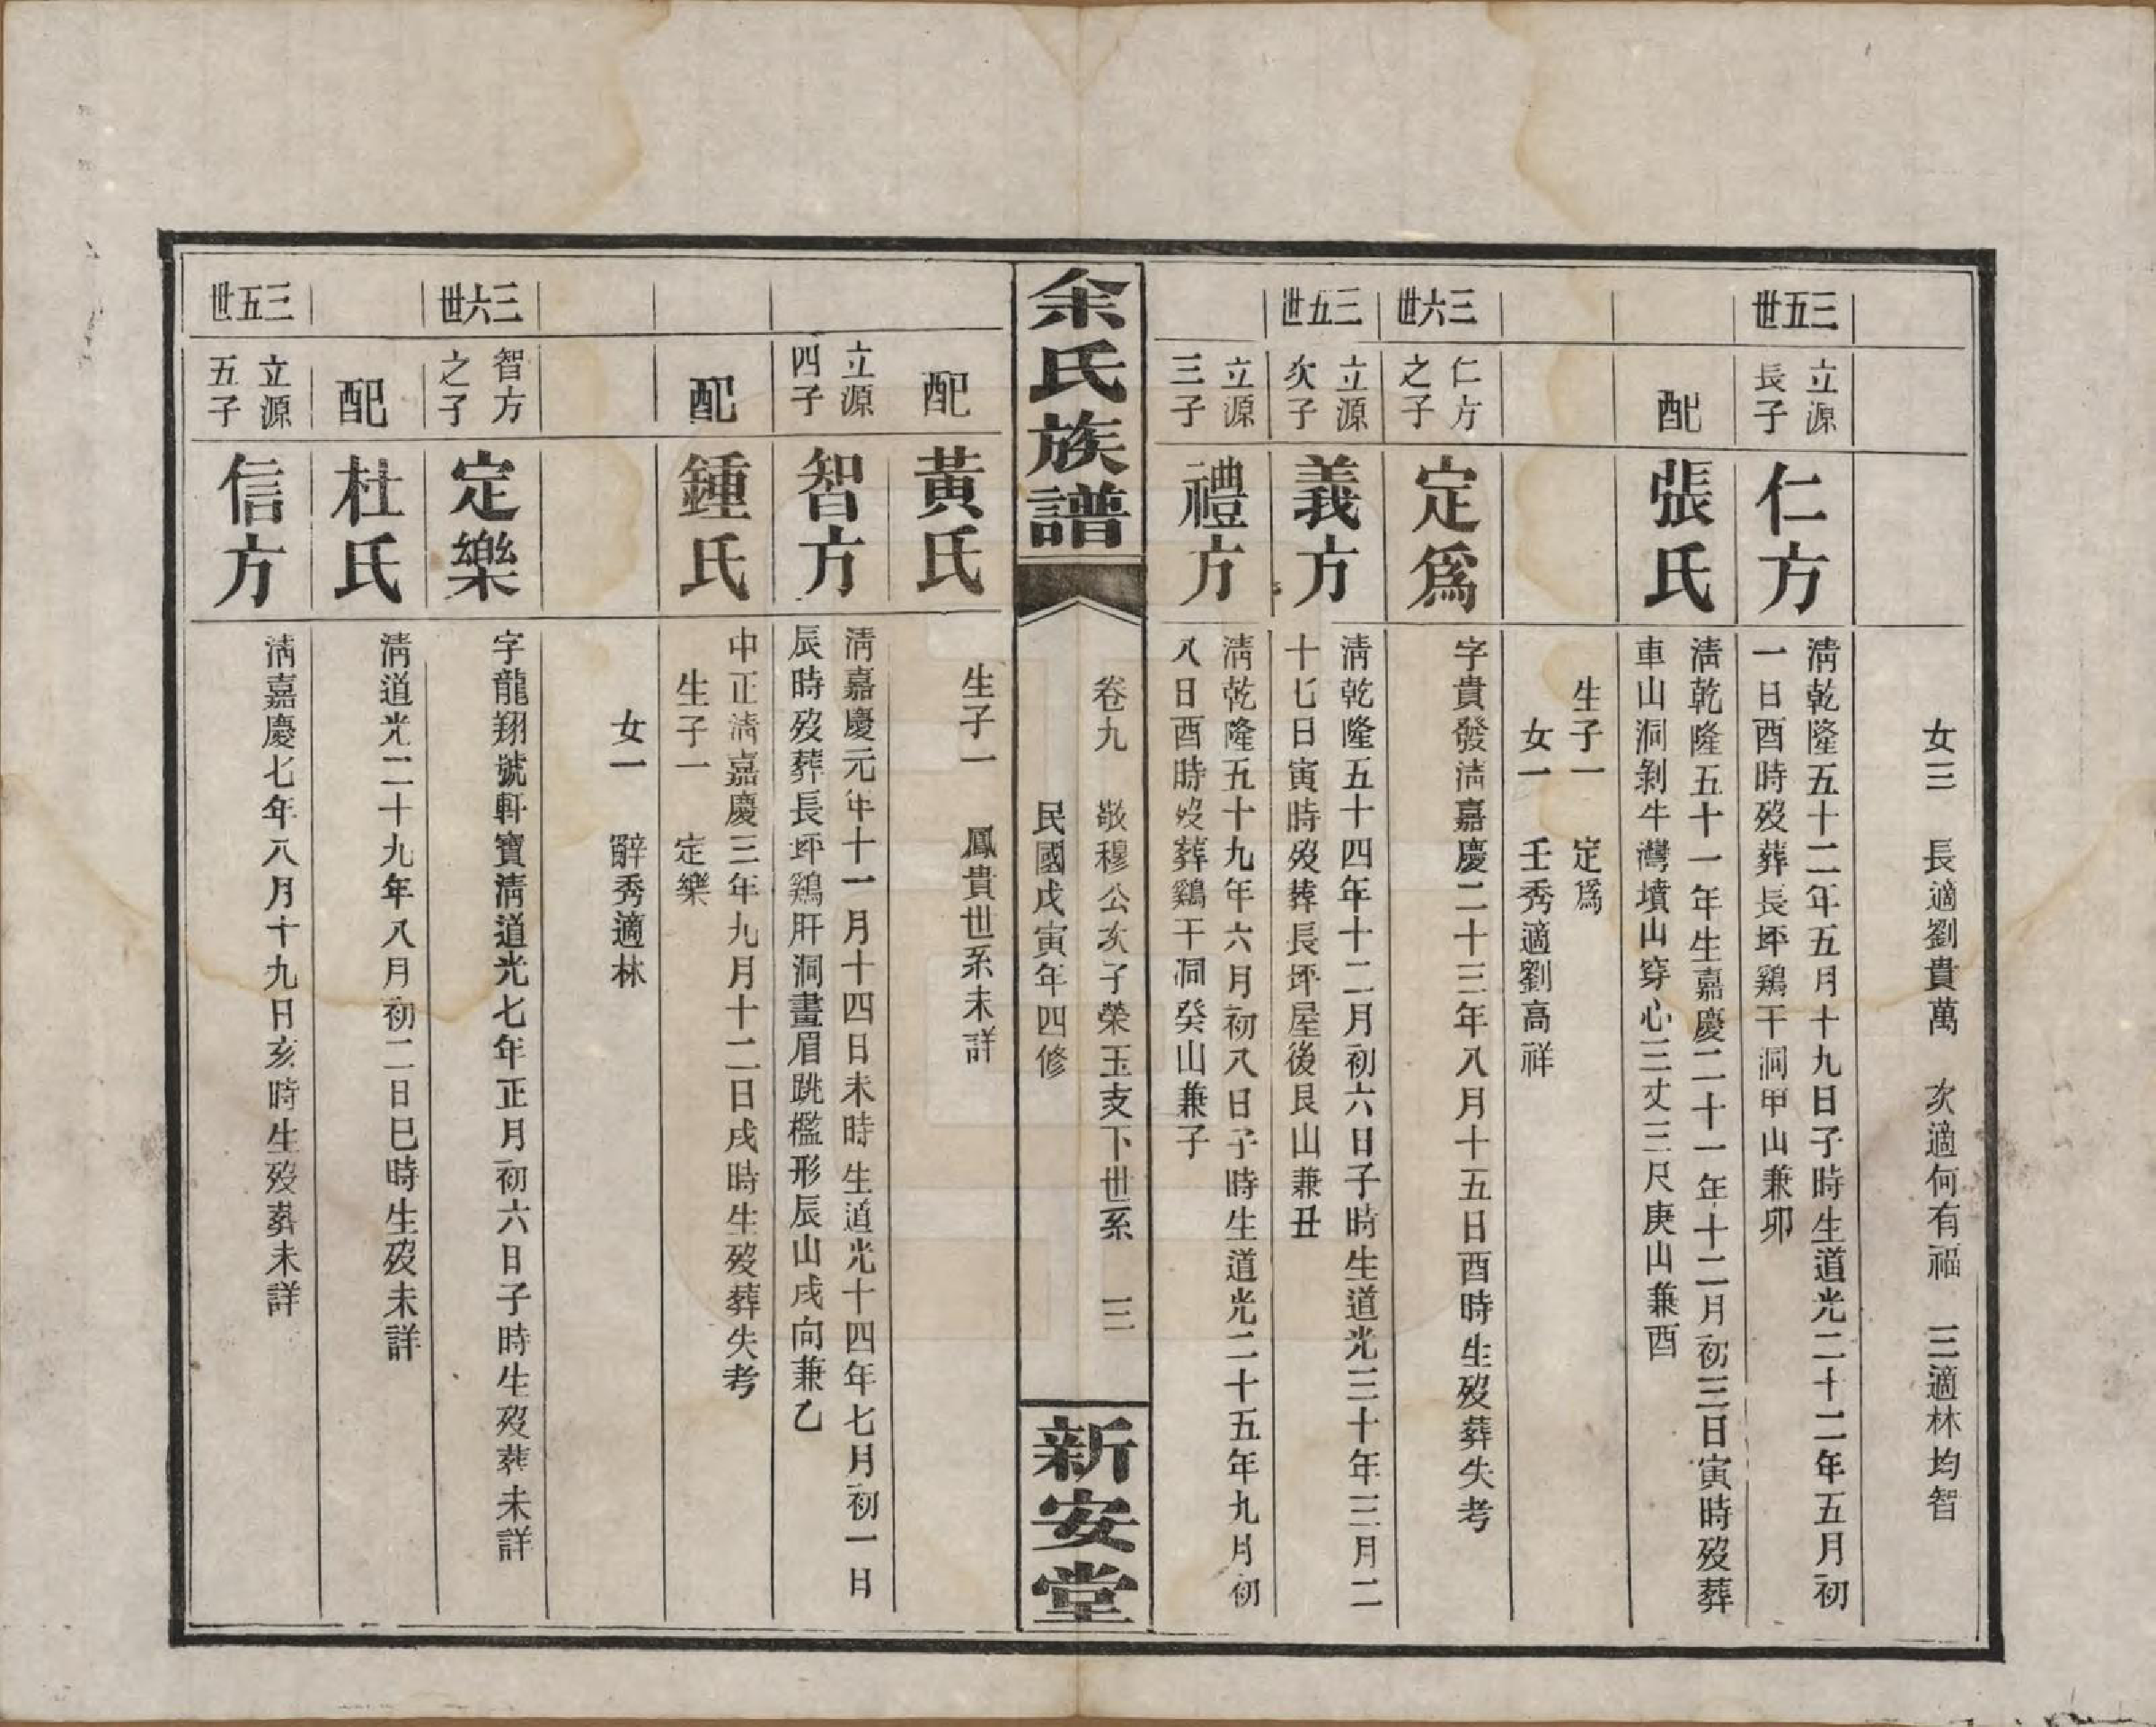 女三　長適劉貴萬　次適何有福　三適林均智
三五世
立源
長子
仁方
清乾隆五十二年五月十九日子時生道光二十二年五月初
一日酉時歿葬長坪鷄干洞甲山兼卯
配
張氏
清乾隆五十一年生嘉慶二十一年十二月初三日寅時歿葬
車山洞剝牛灣墳山穿心三丈三尺庚山兼酉
生子一　定爲
女一　壬秀適劉高祥
三六世
仁方
之子
定爲
字貴發清嘉慶二十三年八月十五日酉時生歿葬失考
三五世
立源
次子
義方
清乾隆五十四年十二月初六日子時生道光三十年三月二
十七日寅時歿葬長坪屋後艮山兼丑
立源
三子
禮方
清乾隆五十九年六月初八日子時生道光二十五年九月初
八日酉時歿葬鷄干洞癸山兼子
余氏族譜
卷九　敬穆公次子榮玉支下世系　三
民國戊寅年四修
新安堂
配
黃氏
生子一　鳳貴世系未詳
立源
四子
智方
清嘉慶元年十一月十四日未時生道光十四年七月初一日
辰時歿葬長坪鷄肝洞畫眉跳檻形辰山戌向兼乙
配
鍾氏
中正清嘉慶三年九月十二日戌時生歿葬失考
生子一　定樂
女一　辭秀適林
三六世
智方
之子
定樂
字龍翔號軒寶清道光七年正月初六日子時生歿葬未詳
配
杜氏
清道光二十九年八月初二日巳時生歿未詳
三五世
立源
五子
信方
清嘉慶七年八月十九日亥時生歿葬未詳